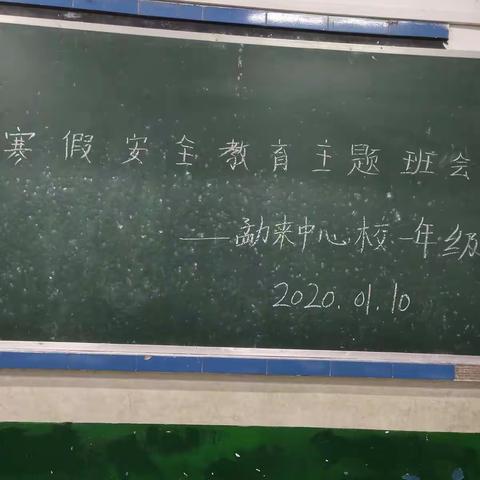 寒假安全教育主题班会
——勐来中心校一年级
2020.01.10